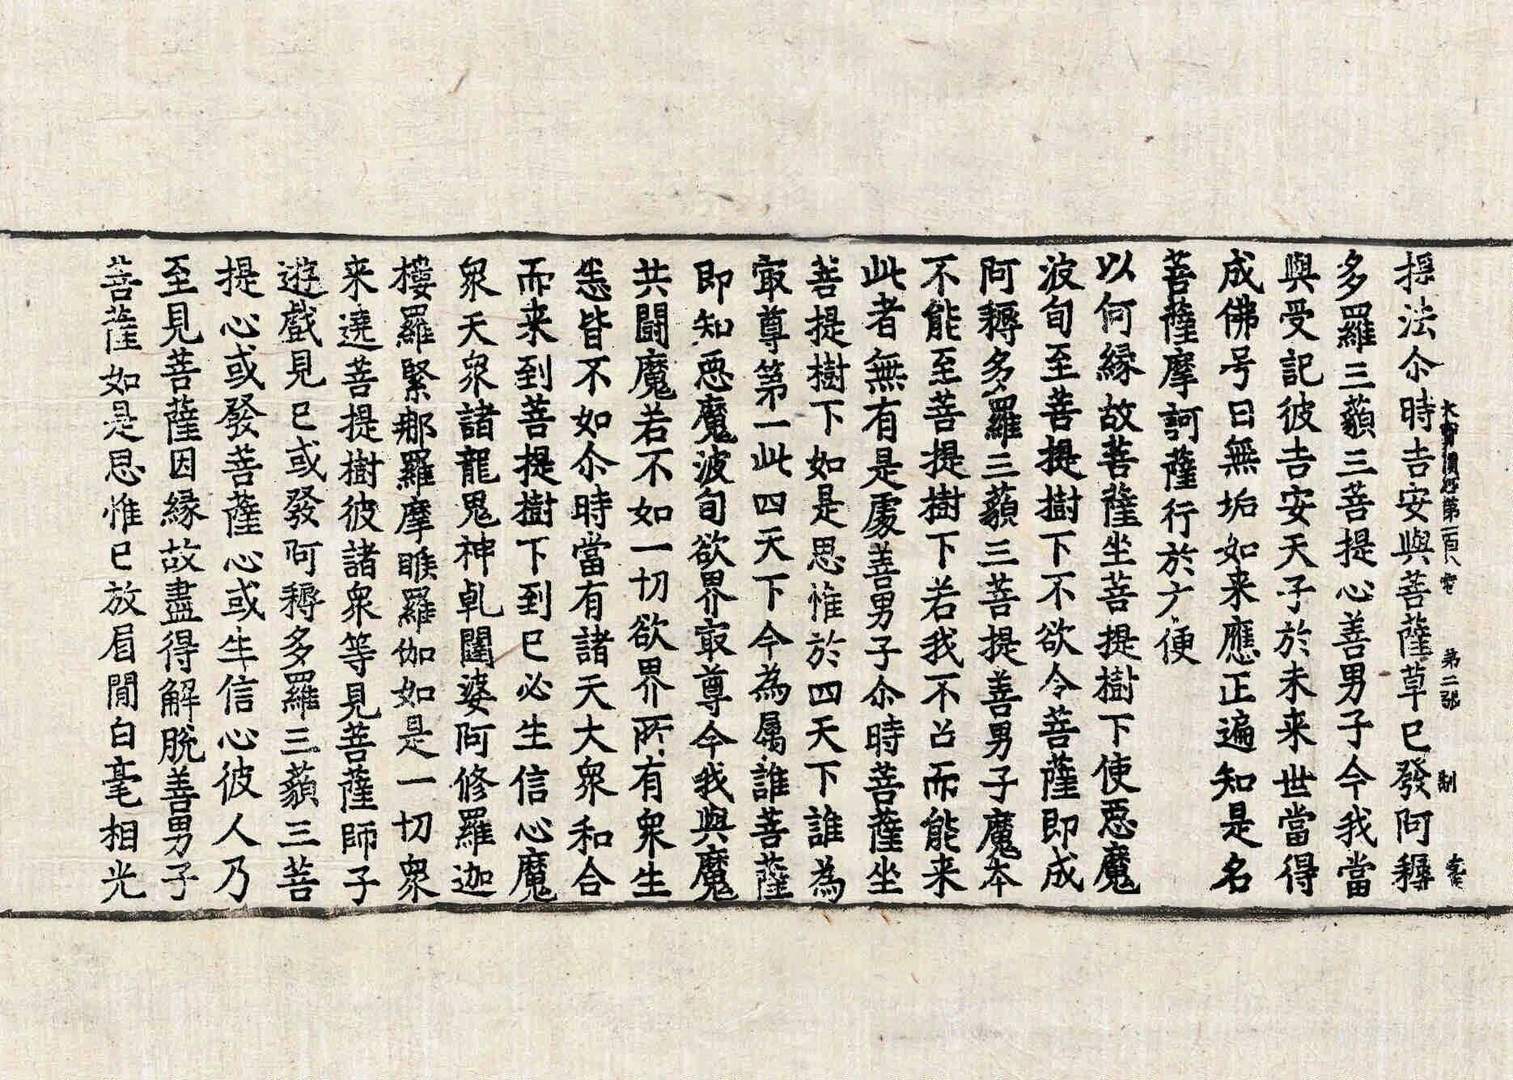 提法尒時吉安與菩薩草已發阿耨
大寶積經第一百八卷 第二張 制
多羅三藐三菩提心善男子今我當
與受記彼吉安天子於未来世當得
成佛号曰無垢如来應正遍知是名
菩薩摩訶薩行於方便
以何緣故菩薩坐菩提樹下使惡魔
波旬至菩提樹下不欲令菩薩即成
阿耨多羅三藐三菩提善男子魔本
不能至菩提樹下若我不召而能来
此者無有是處善男子尒時菩薩坐
菩提樹下如是思惟於四天下誰為
㝡尊第一此四天下今為屬誰菩薩
即知惡魔波旬欲界㝡尊今我與魔
共鬪魔若不如一切欲界所有衆生
悉皆不如尒時當有諸天大衆和合
而来到菩提樹下到已必生信心魔
衆天衆諸龍鬼神乹闥婆阿修羅迦
樓羅緊那羅摩睺羅伽如是一切衆
来遶菩提樹彼諸衆等見菩薩師子
遊戲見已或發阿耨多羅三藐三菩
提心或發菩薩心或生信心彼人乃
至見菩薩因緣故盡得解脫善男子
菩薩如是思惟已放眉閒白毫相光